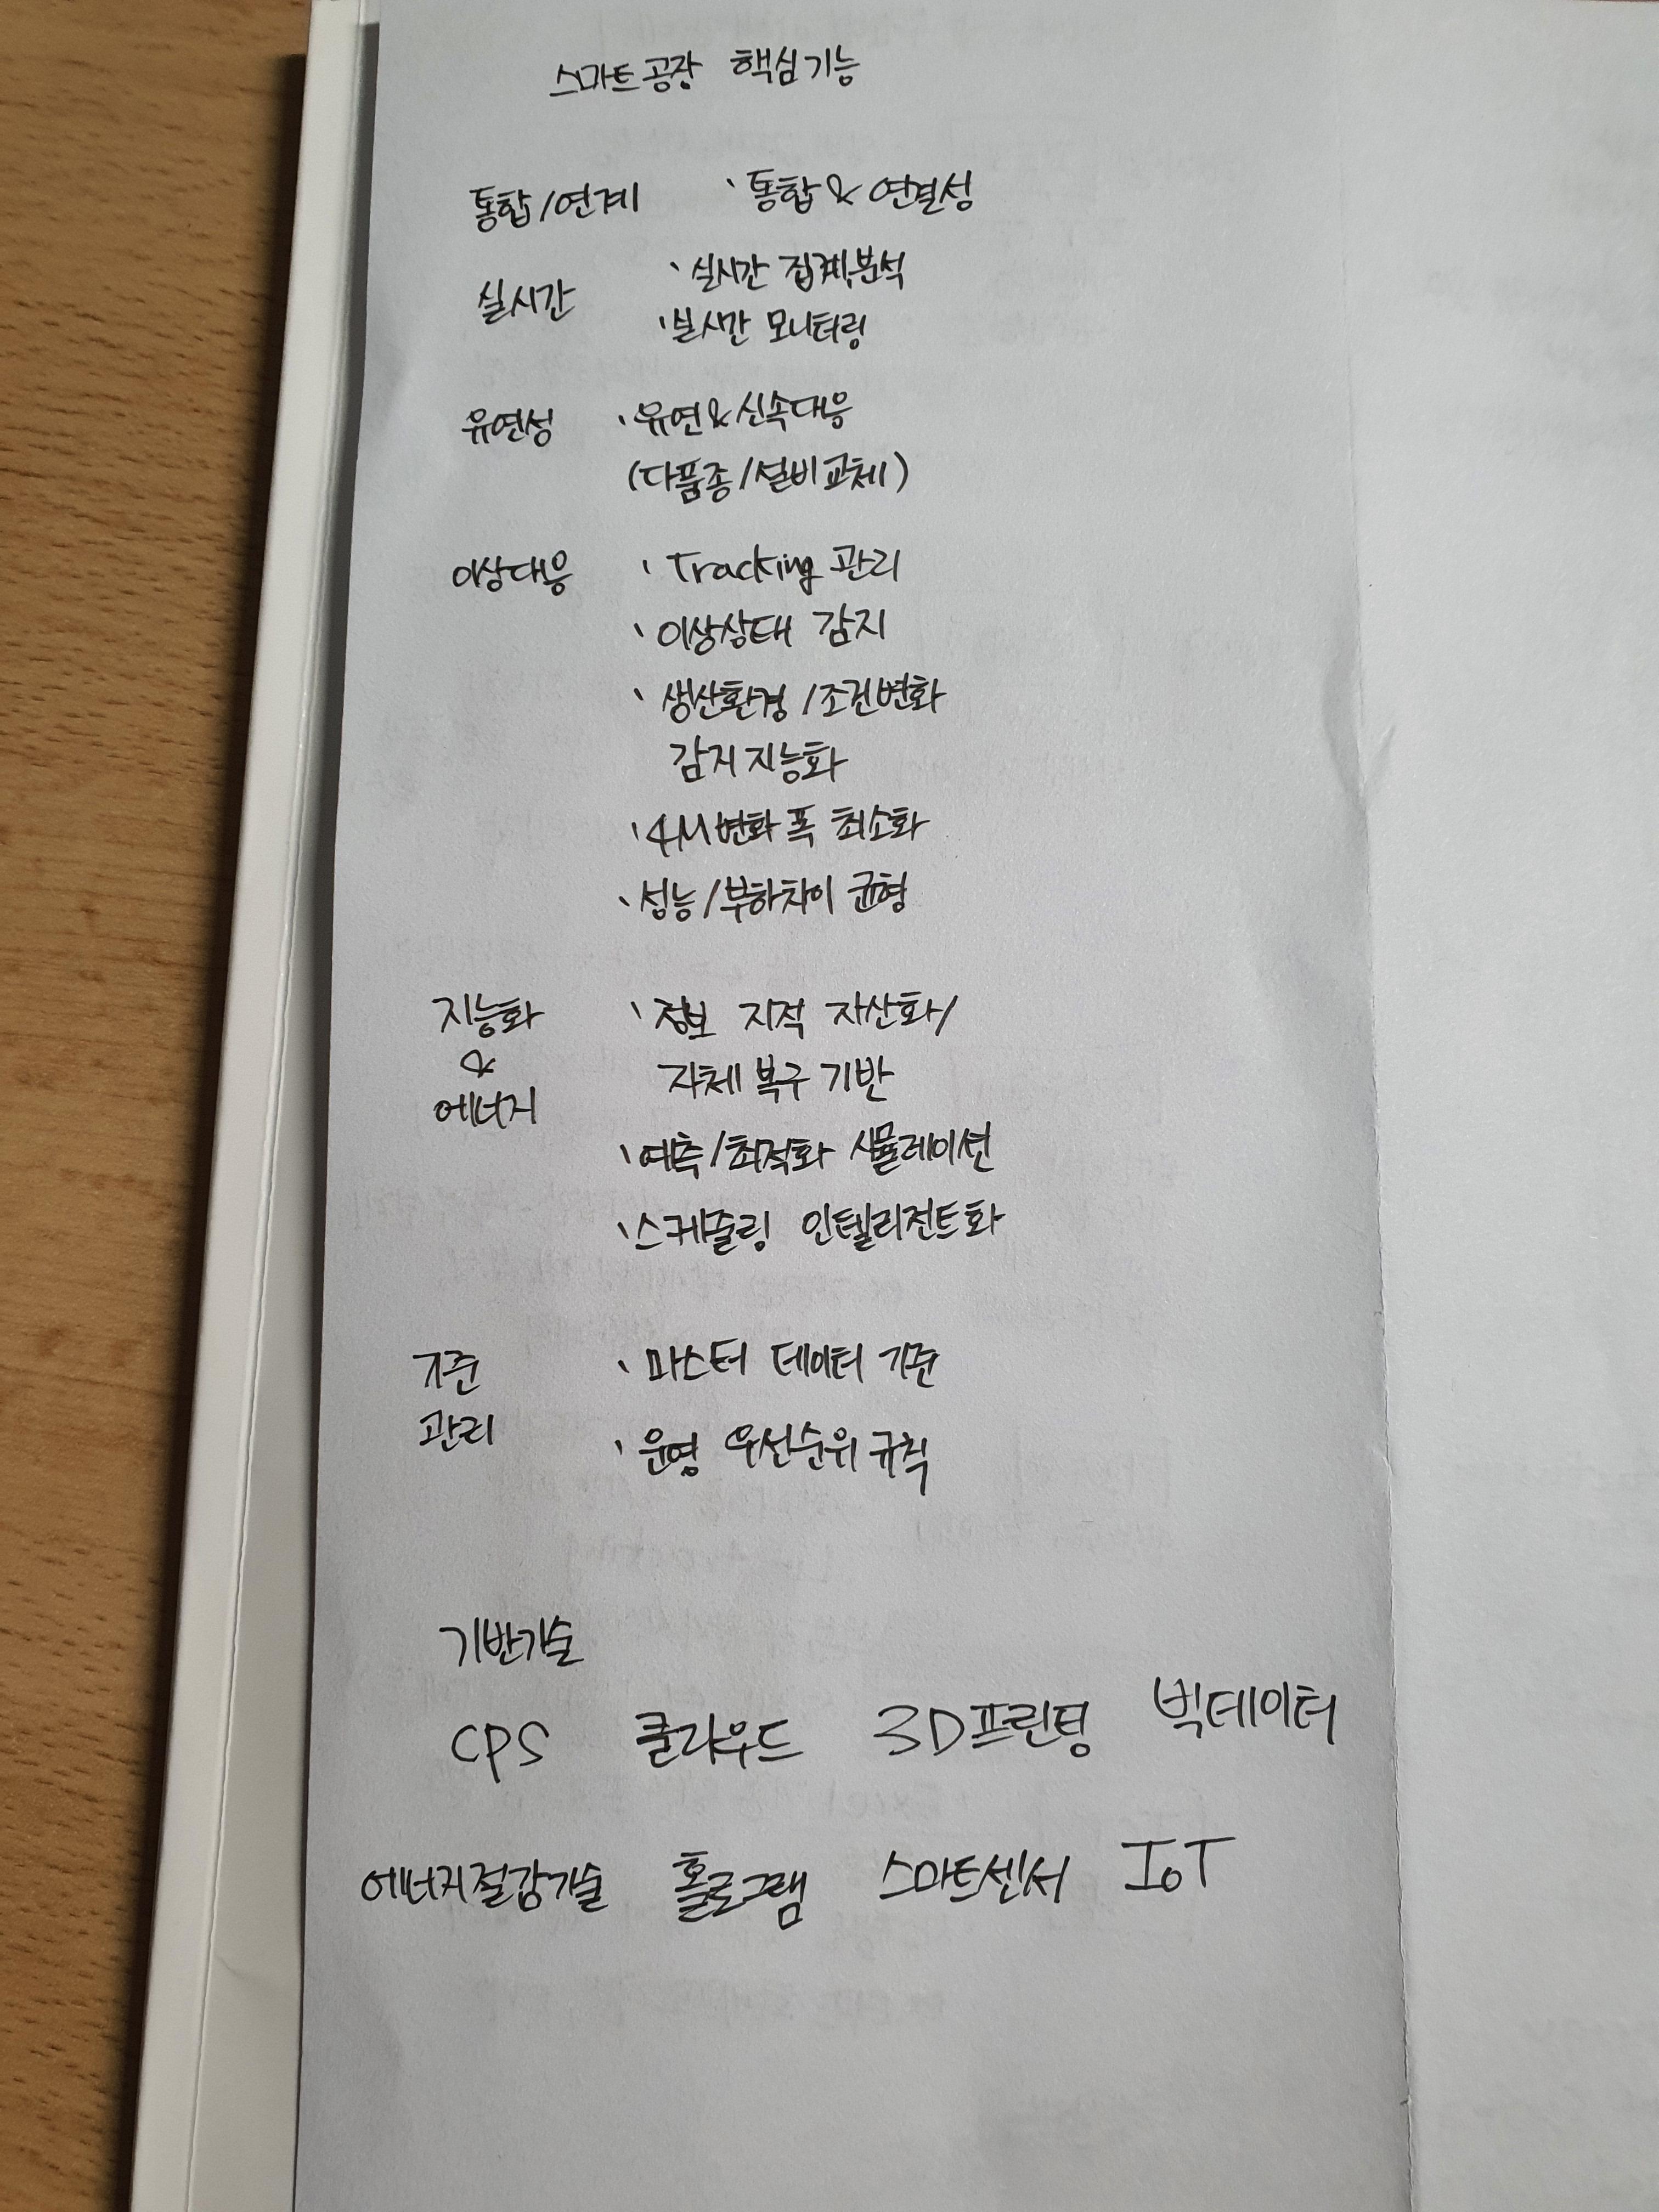 스마트공장 핵심기능
통합/연계 ` 통합 & 연결성
실시간 ` 실시간 집계,분석
` 실시간 모니터링
유연성 ` 유연&신속대응
(다품종/설비교체)
이상대응 ` Tracking 관리
` 이상상태 감지
` 생산환경/조건변화
감지지능화
` 4M변화 폭 최소화
` 성능/부하차이 균형
지능화 ` 정보 지적 자산화/
& 자체 복구 기반
에너지
` 예측/최적화 시뮬레이션
` 스케줄링 인텔리전트화
기준 ` 마스터 데이터 기준
관리 ` 운영 우선순위 규칙
기반기술
CPS 클라우드 3D프린팅 빅데이터
에너지절감기술 홀로그램 스마트센서 IoT